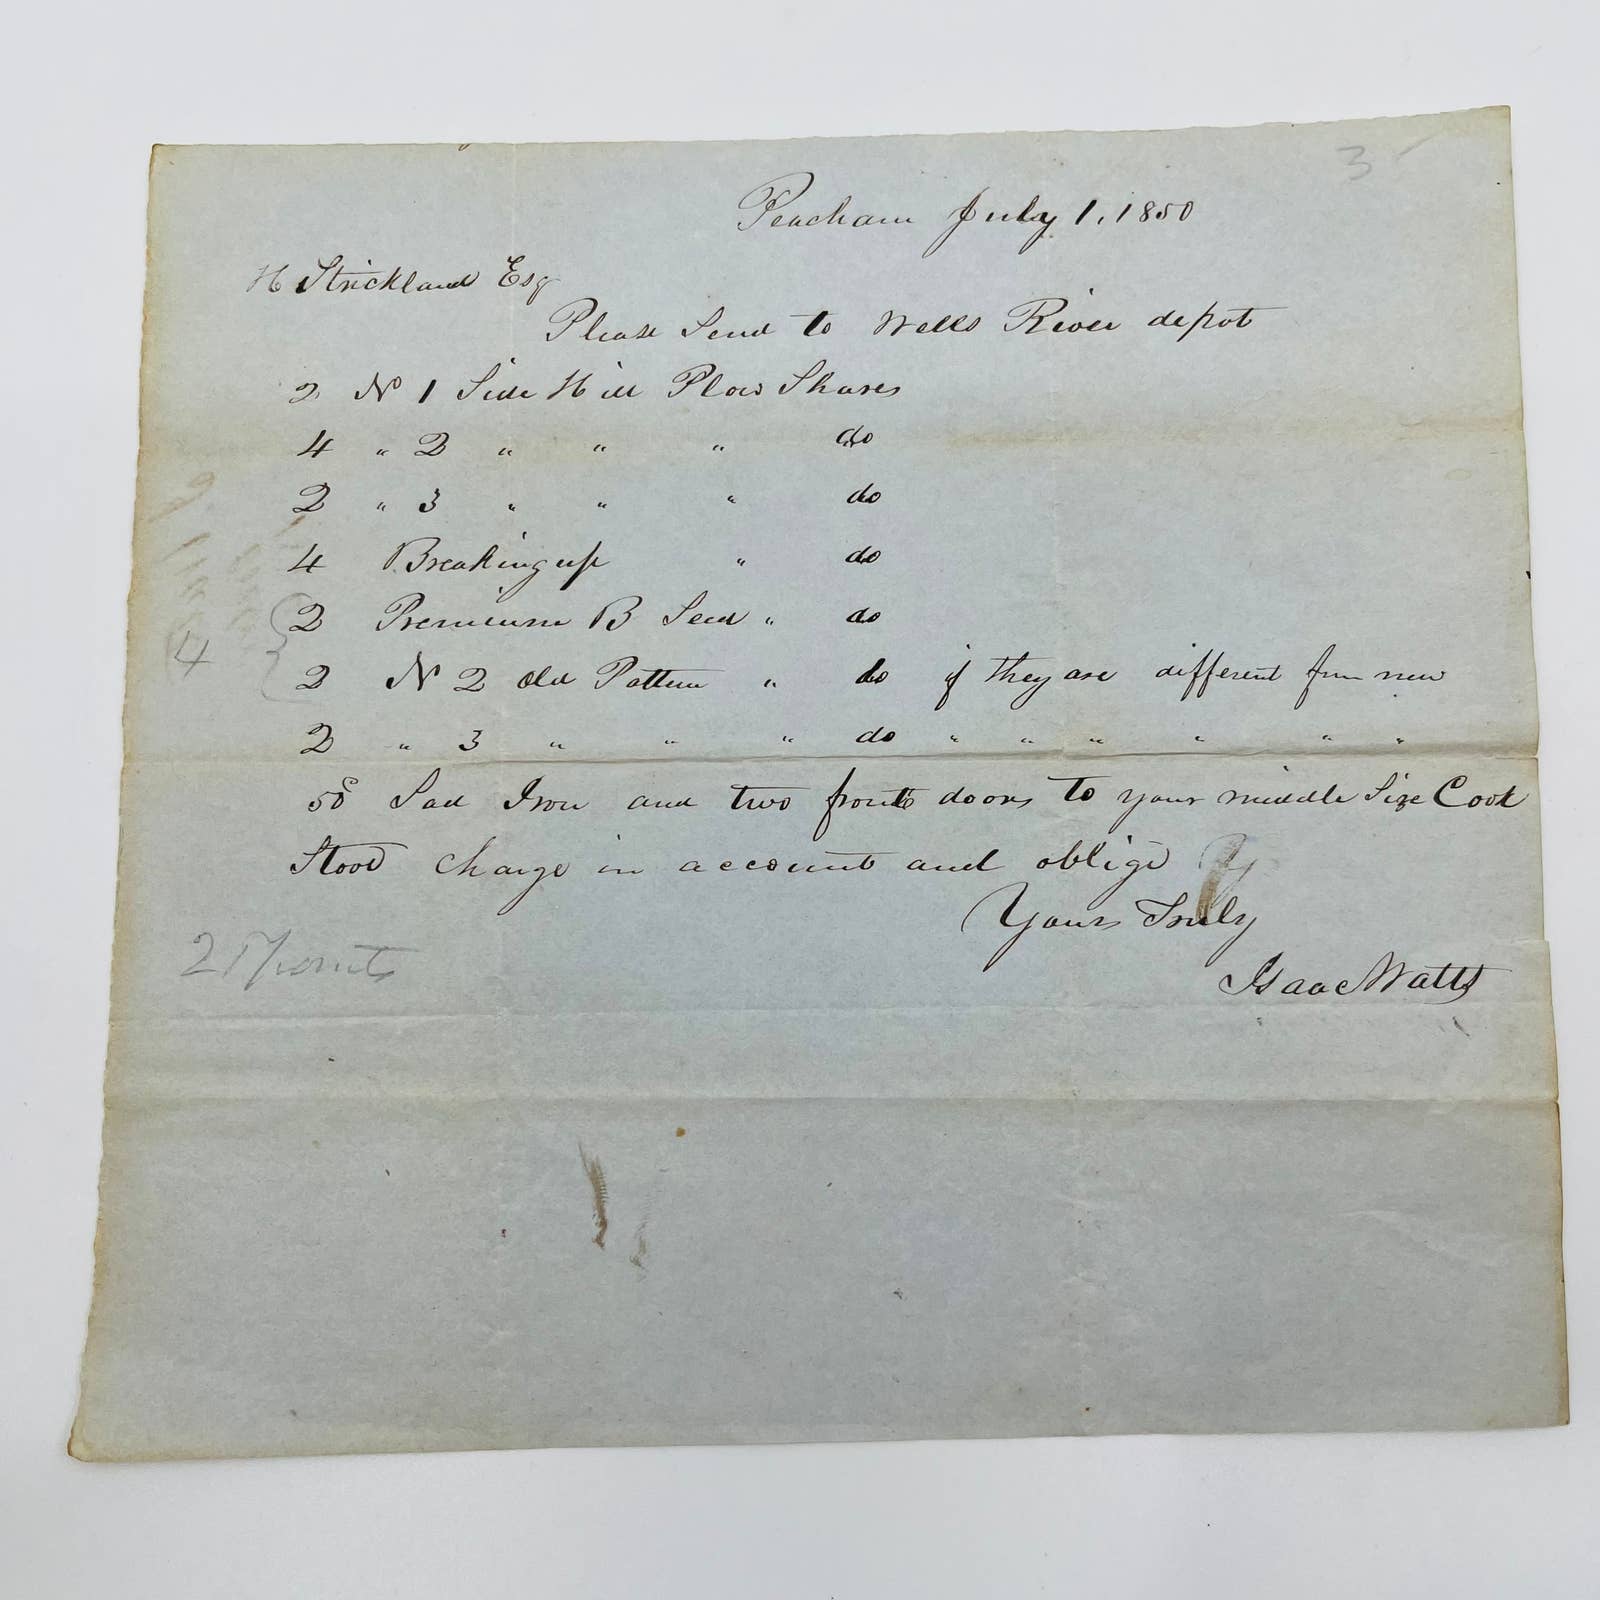 3
Peacham July 1, 1850
H Strickland Esq
Please Send to Wells River depot
2 N 1 Side Hill Plow Shares
4 " 2 " " " do
2 " 3 " " " do
4 Breaking up " do
2 Premium B Seed " do
4
2 N 2 Old Pattern " do if they are different from new
2 " 3 " " " do " " " " " "
50 Sad Iron and two fronts doors to your middle Size Cook
Stove Charge in account and oblige Y
Yours Truly
2 Fronts
Isaac Watts